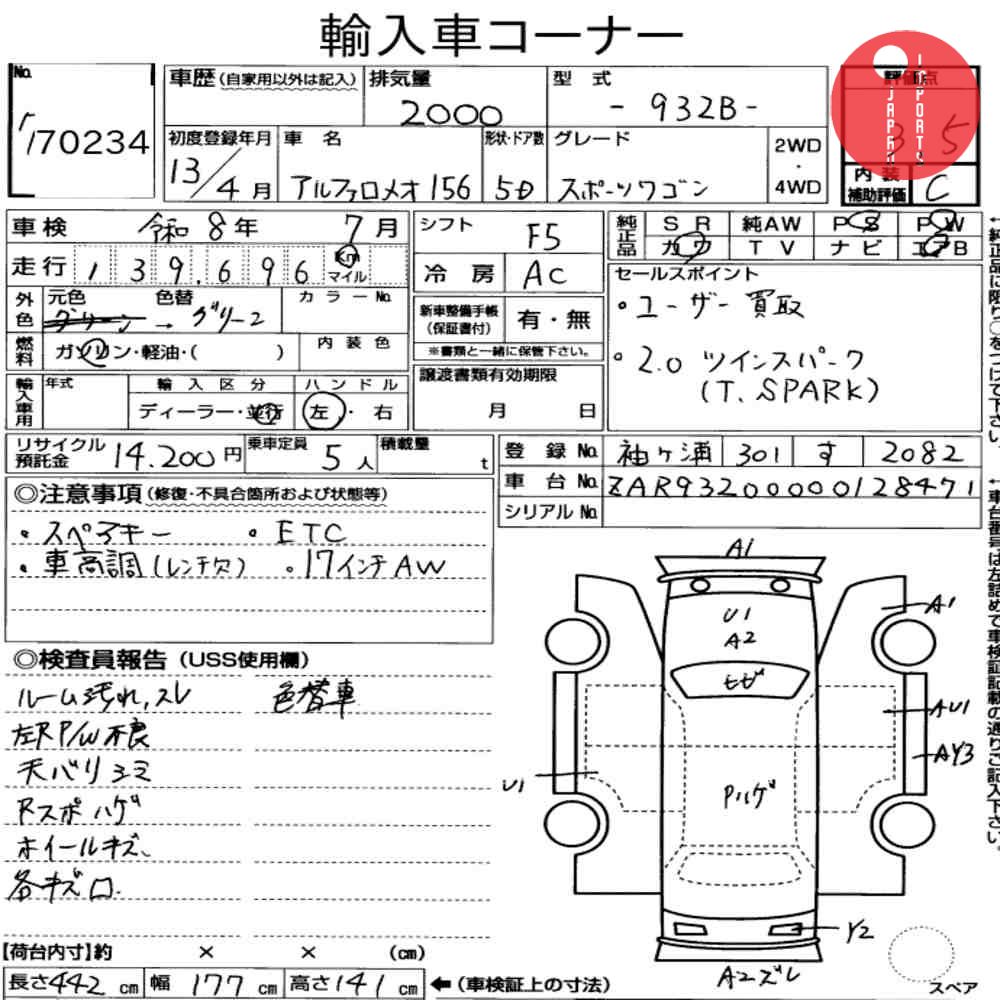 輸入車コーナー
No.
170234
車歴(自家用以外は記入)
排気量
2000
型式
- 932B -
評価点
3.5
JAPAN IMPORTS
初度登録年月
13/4月
車名
アルファロメオ 156
形状・ドア数
5D
グレード
スポーツワゴン
2WD
・
4WD
内装
補助評価
C
車検
令和8年 7月
走行 139.696 Km マイル
シフト
F5
冷房
AC
純正品
SR 純AW PS PW
カワ TV ナビ エアB
外色
元色 色替
グリーン → グリーン
カラーNo.
燃料
ガソリン・軽油・( )
内装色
新車整備手帳
(保証書付)
有・無
※書類と一緒に保管下さい。
セールスポイント
・ユーザー買取
・2.0 ツインスパーク
(T. SPARK)
輸入車用
年式
輸入区分
ディーラー・並行
ハンドル
左・右
譲渡書類有効期限
月 日
リサイクル預託金
14.200円
乗車定員
5人
積載量
t
登録No. 袖ヶ浦 301 す 2082
車台No. ZAR93200000128471
シリアルNo.
←純正品に限り○をつけて下さい。
←車台番号は左詰めで車検証記載の通りご記入下さい。
◎注意事項(修復・不具合箇所および状態等)
・スペアキー ・ETC
・車高調(レンチ欠) ・17インチAW
◎検査員報告(USS使用欄)
ルーム汚れ,スレ 色替車
左R P/W不良
天バリシミ
Rスポハゲ
ホイールキズ、
各キズ凹.
A1
U1
A2
A1
ヒビ
AU1
AY3
U1
Pハゲ
Y2
A2ズレ
スペア
【荷台内寸】約 × × (cm)
長さ442cm 幅177cm 高さ141cm ←(車検証上の寸法)